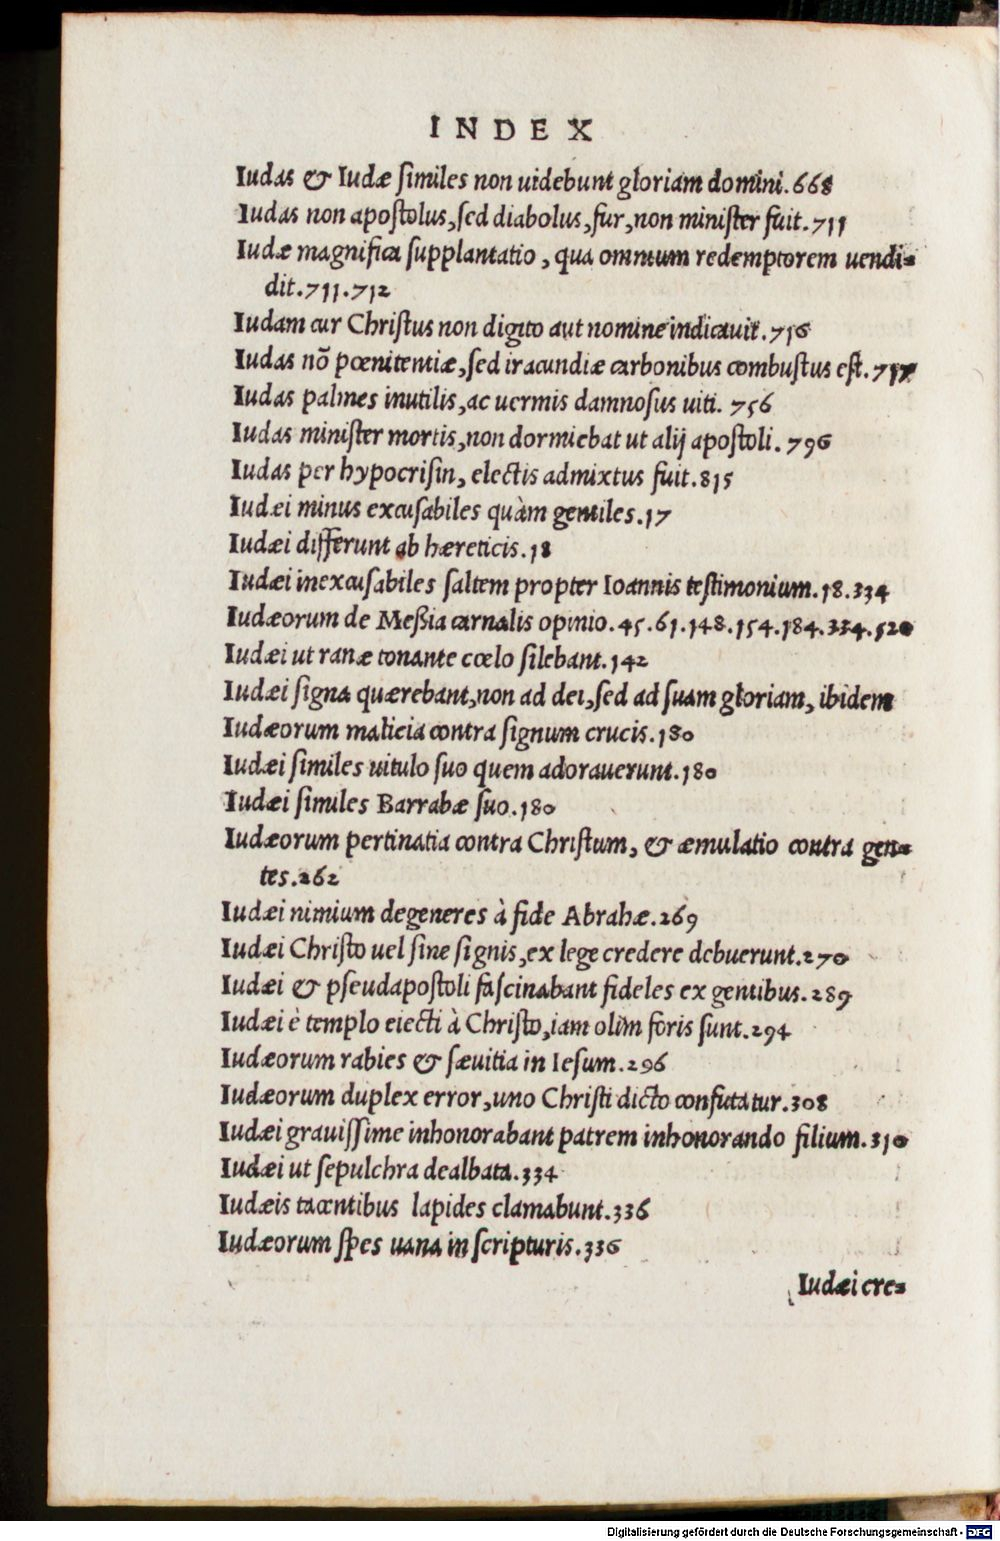 INDEX
Iudas & Iudæ ſimiles non uidebunt gloriam domini.668
Iudas non apoſtolus,ſed diabolus,fur,non miniſter fuit.711
Iudæ magnifica ſupplantatio, qua omnium redemptorem uendi-
dit.711.712
Iudam cur Chriſtus non digito aut nomine indicauit.716
Iudas nō pœnitentiæ,ſed iracundiæ carbonibus combuſtus eſt.
Iudas palmes inutilis,ac uermis damnoſus uiti. 756
Iudas miniſter mortis,non dormiebat ut alij apoſtoli.796
Iudas per hypocriſin, electis admixtus fuit.815
Iudæi minus excuſabiles quàm gentiles.17
Iudæi differunt ab hæreticis.18
Iudæi inexcuſabiles ſaltem propter Ioannis teſtimonium.18.334
Iudæorum de Meßia carnalis opinio.45.61.148.154.184.334.520
Iudæi ut ranæ tonante cœlo ſilebant.142
Iudæi ſigna quærebant,non ad dei,ſed ad ſuam gloriam, ibidem
Iudæorum malicia contra ſignum crucis.180
Iudæi ſimiles uitulo ſuo quem adorauerunt.180
Iudæi ſimiles Barrabæ ſuo.180
Iudæorum pertinatia contra Chriſtum, & æmulatio contra gen-
tes.262
Iudæi nimium degeneres à fide Abrahæ.269
Iudæi Chriſto uel ſine ſignis,ex lege credere debuerunt.270
Iudæi & pſeudapoſtoli faſcinabant fideles ex gentibus.289
Iudæi è templo eiecti à Chriſto,iam olim foris ſunt.294
Iudæorum rabies & ſæuitia in Ieſum.296
Iudæorum duplex error,uno Chriſti dicto confutatur.308
Iudæi grauiſſime inhonorabant patrem inhonorando filium.310
Iudæi ut ſepulchra dealbata.334
Iudæis tacentibus lapides clamabunt.336
Iudæorum ſpes uana in ſcripturis.336
Iudæi cre-
Digitalisierung gefördert durch die Deutsche Forschungsgemeinschaft - DFG